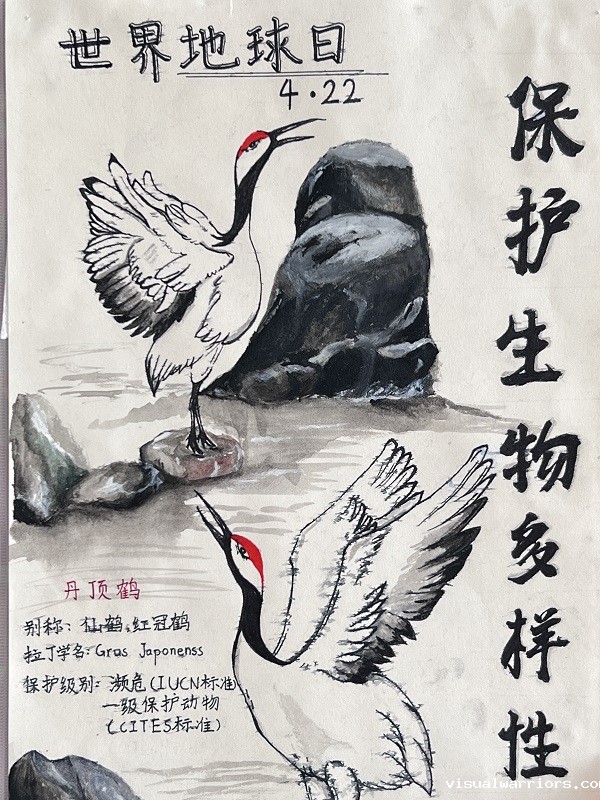 世界地球日
4.22
保护生物多样性
丹顶鹤
别称：仙鹤、红冠鹤
拉丁学名：Grus Japonenss
保护级别：濒危(IUCN标准)
一级保护动物
(CITES标准)
visualwarriors.com